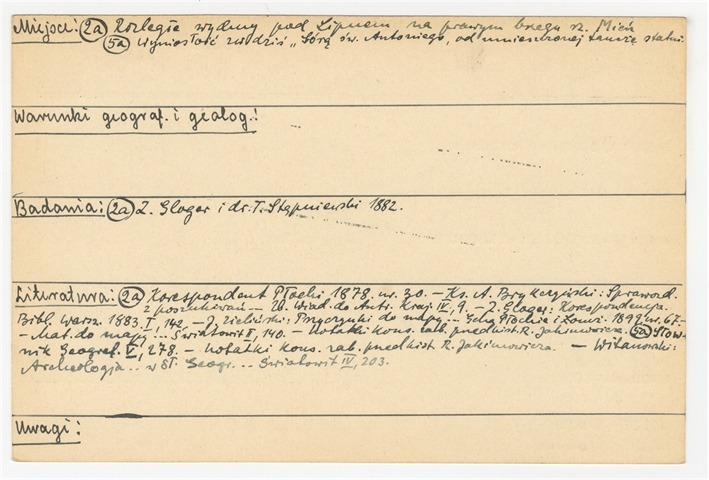 Miejsce: 2a Rozległe wydmy pod Lipnem na prawym brzegu rz. Mień
5a Wyniosłość zw. dziś „Górą św. Antoniego, od umieszczonej tamże statui.
Warunki geograf. i geolog.:
Badania: 2a Z. Gloger i dr. T. Stępniewski 1882.
Literatura: 2a Korespondent Płocki 1878. nr. 30. – Ks. A. Brykczyński: Sprawozd.
z poszukiwań – Zb. Wiad. do Antr. Kraj. IV, 9. – Z. Gloger: Korespondencja.
Bibl. Warsz. 1883. I, 142. – J. Zieliński: Przyczynki do mapy – Echa Płockie i Łomż. 1899 nr. 67.
– Mat. do mapy ... Światowit II, 140. – Notatki kons. zab. predhist. R. Jakimowicza. 5a Słow-
nik Geograf. V, 278. – Notatki kons. zab. predhist. R. Jakimowicza. – Witanowski:
Archeologja .. w Sł. Geogr... Światowit IV, 203.
Uwagi: